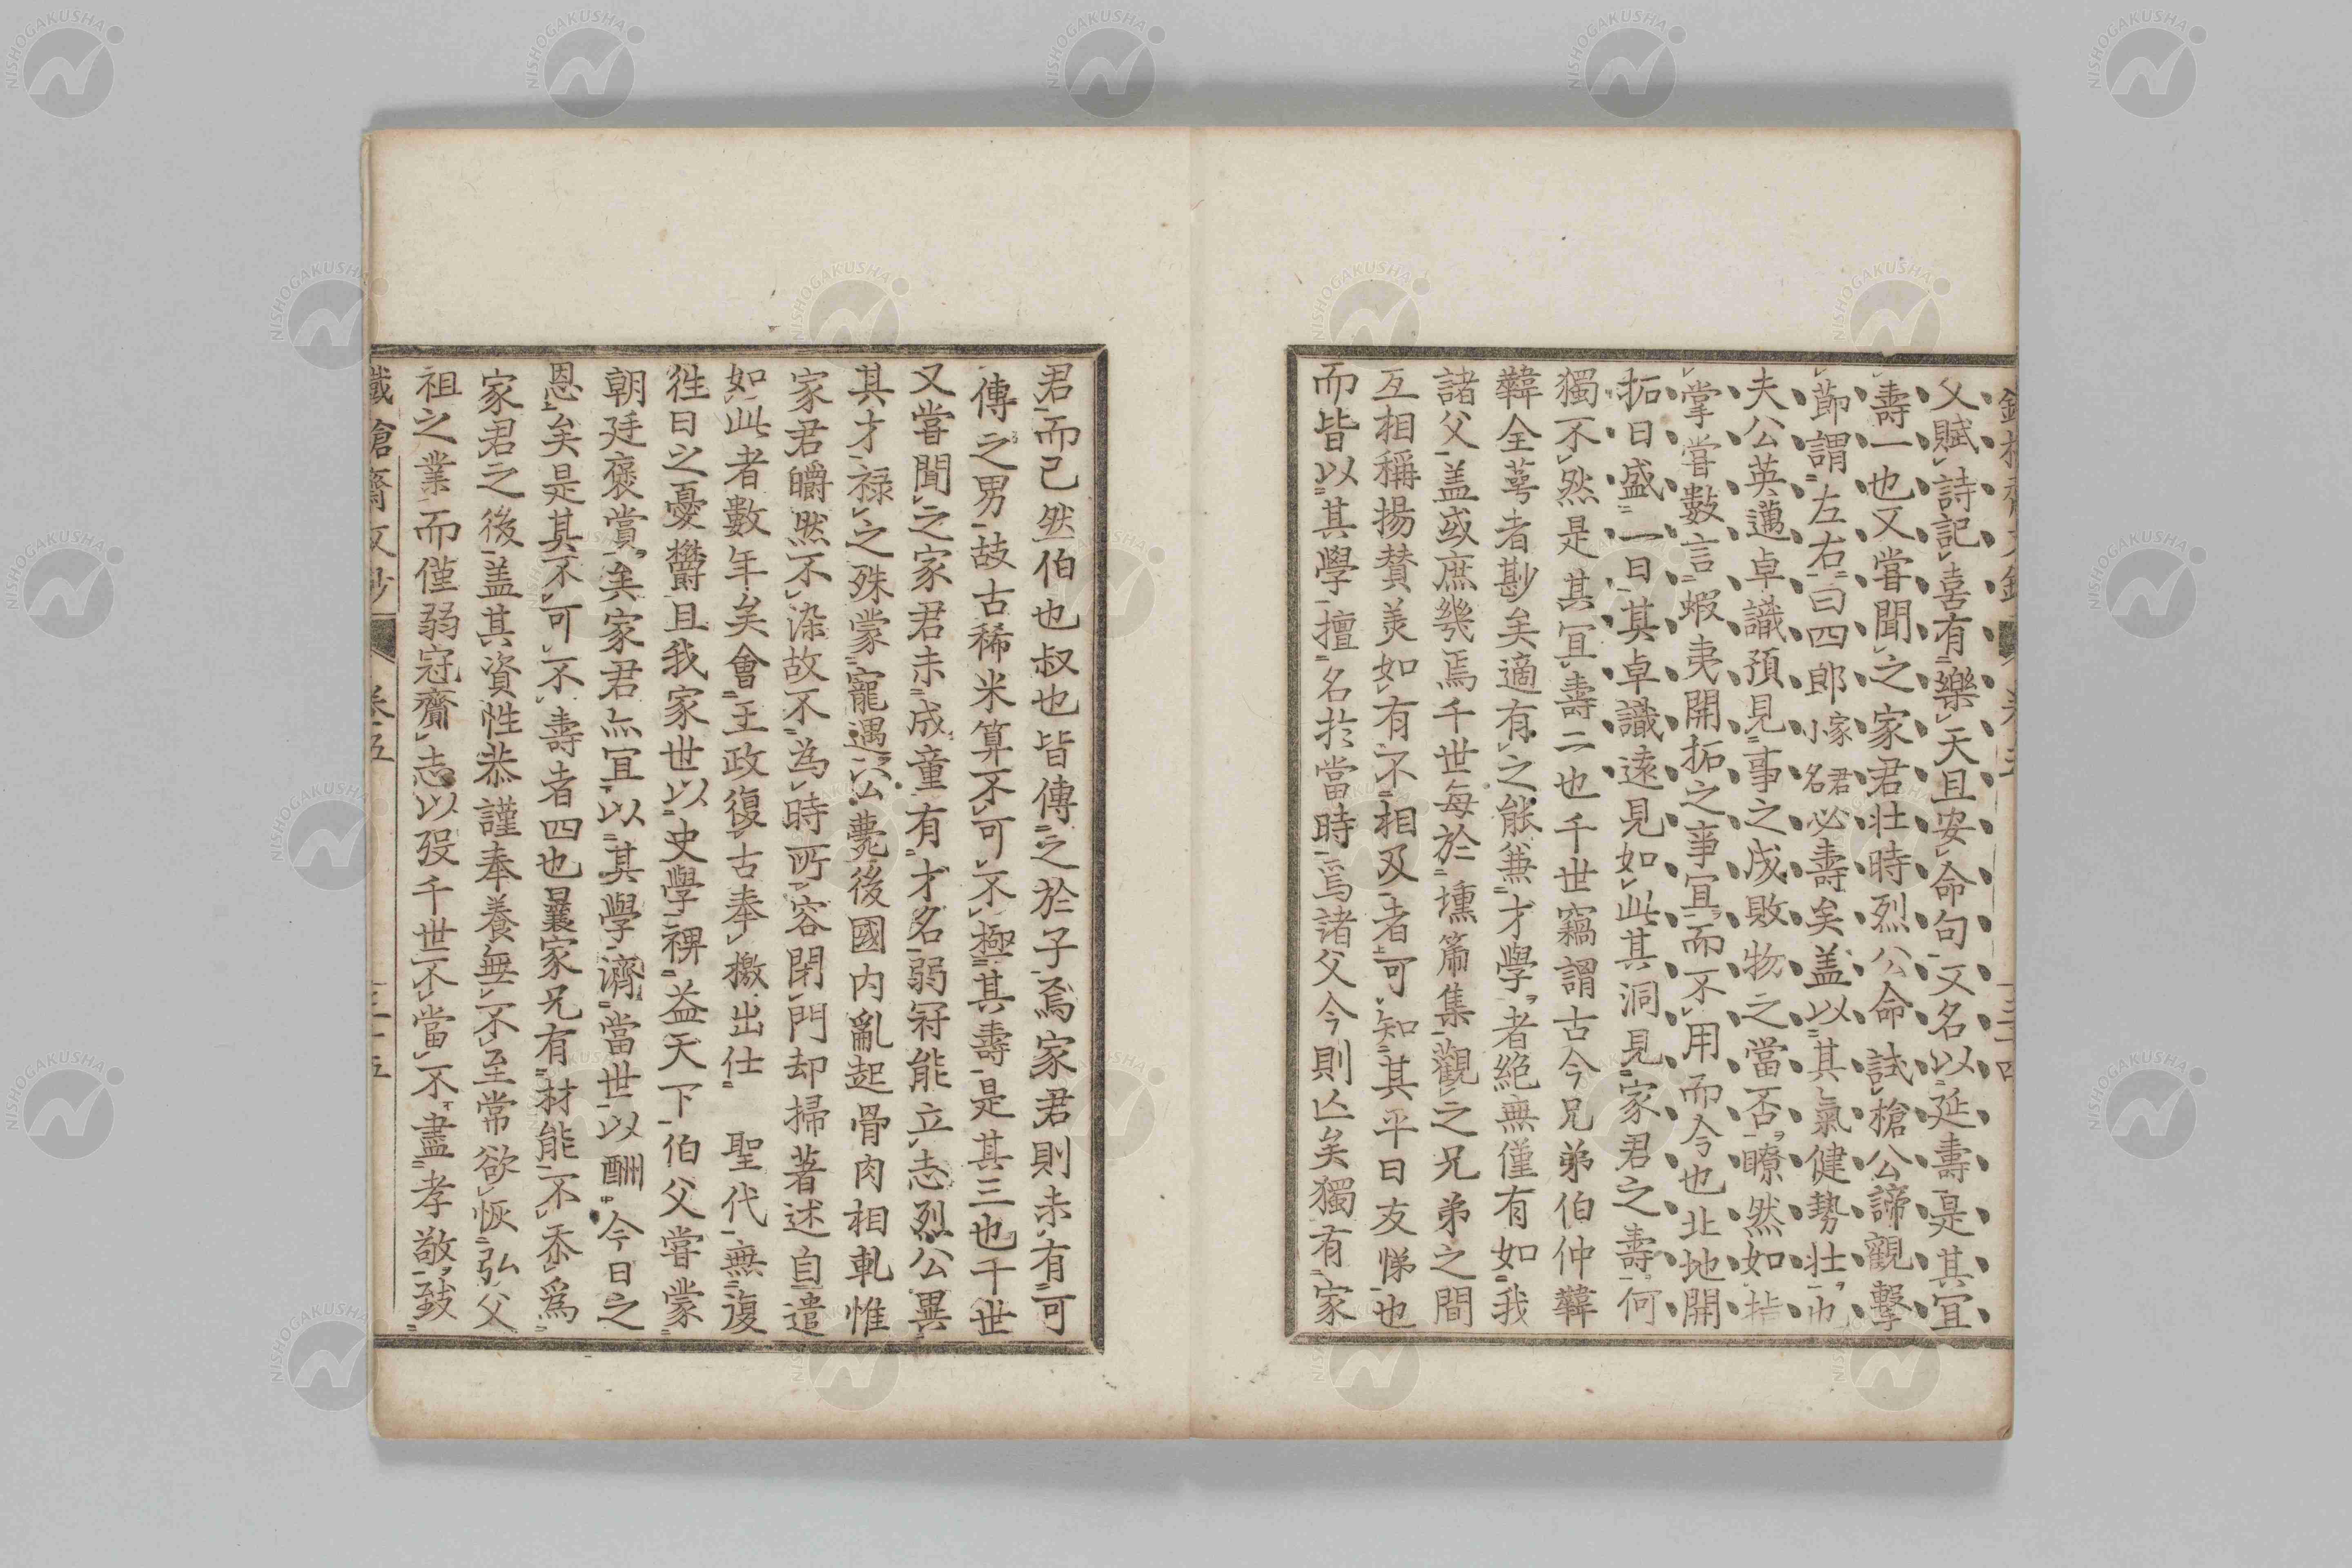 父賦詩記喜有樂天且安命句又名以延壽是其宜
壽一也又嘗聞之家君壯時烈公命試槍公諦觀擊
節謂左右曰四郎家君小名必壽矣蓋以其氣健勢壯也
夫公英邁卓識預見事之成敗物之當否瞭然如指
掌嘗數言蝦夷開拓之事宜而不用而今也北地開
拓日盛一日其卓識遠見如此其洞見家君之壽何
獨不然是其宜壽二也千世竊謂古今兄弟伯仲韡
韡全萼者尠矣適有之能兼才學者絕無僅有如我
諸父蓋或庶幾焉千世每於壎篪集觀之兄弟之間
互相稱揚贊美如有不相及者可知其平日友悌也
而皆以其學擅名於當時焉諸父今則亡矣獨有家
君而已然伯也叔也皆傳之於子焉家君則未有可
傳之男故古稀米算不可不極其壽是其三也千世
又嘗聞之家君未成童有才名弱冠能立志烈公異
其才祿之殊蒙寵遇公薨後國内亂起骨肉相軋惟
家君皭然不染故不為時所容閉門却掃著述自遣
如此者數年矣會王政復古奉檄出仕　聖代無復
徃日之憂欝且我家世以史學裨益天下伯父嘗蒙
朝廷褒賞矣家君亦宜以其學濟當世以酬今日之
恩矣是其不可不壽者四也曩家兄有材能不忝爲
家君之後蓋其資性恭謹奉養無不至常欲恢弘父
祖之業而僅弱冠齎志以歿千世不當不盡孝敬致
鐵槍齋文鈔　卷五　三十五